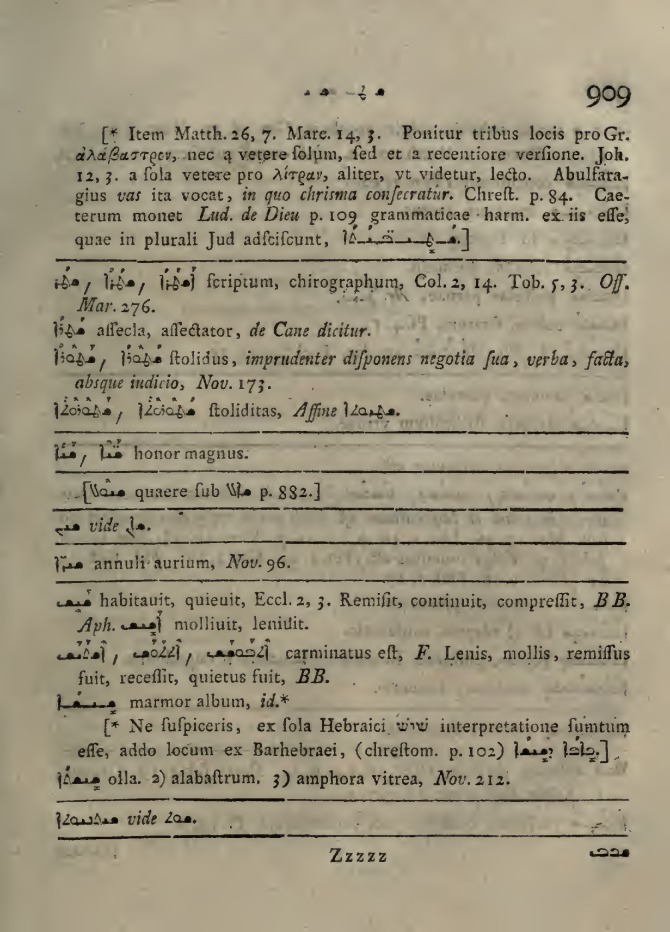 909
[* Item Matth. 26, 7. Marc. 14, 3. Ponitur tribus locis pro Gr.
ἀλάβαστρον, nec a vetere ſolum, ſed et a recentiore verſione. Joh.
12, 3. a ſola vetere pro λίτραν, aliter, vt videtur, lecto. Abulfara-
gius vas ita vocat, in quo chrisma conſecratur. Chreſt. p. 84. Cae-
terum monet Lud. de Dieu p. 109 grammaticae harm. ex iis eſſe,
quae in plurali Jud adſciſcunt, .]
ſcriptum, chirographum, Col. 2, 14. Tob. 5, 3. Off.
Mar. 276.
aſſecla, aſſectator, de Cane dicitur.
ſtolidus, imprudenter diſponens negotia ſua, verba, facta,
absque iudicio, Nov. 173.
ſtoliditas, Affine
honor magnus.
[ quaere ſub p. 882.]
vide
annuli aurium, Nov. 96.
habitauit, quieuit, Eccl. 2, 3. Remiſit, continuit, compreſſit, BB.
Aph. molliuit, leniuit.
carminatus eſt, F. Lenis, mollis, remiſſus
fuit, receſſit, quietus fuit, BB.
marmor album, id.*
[* Ne ſuſpiceris, ex ſola Hebraici שיש interpretatione ſumtum
eſſe, addo locum ex Barhebraei, (chreſtom. p. 102) ]
olla. 2) alabaſtrum. 3) amphora vitrea, Nov. 212.
vide
Zzzzz